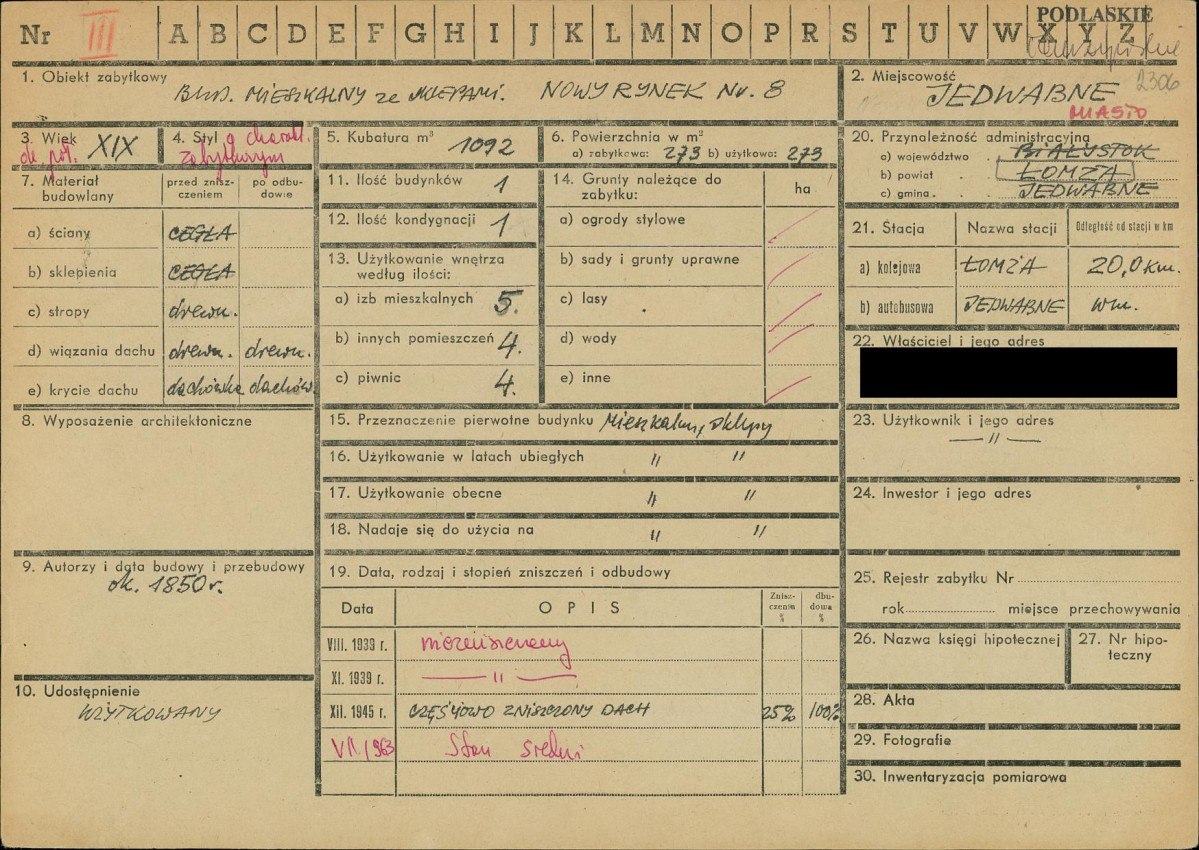 Nr III A B C D E F G H I J K L M N O P R S T U V W X Y Z
PODLASKIE
2306
1. Obiekt zabytkowy
BUD. MIESZKALNY ze SKLEPAMI. NOWY RYNEK Nr. 8
2. Miejscowość
JEDWABNE
MIASTO
3. Wiek
ok. poł. XIX
4. Styl o charakt.
zabytkowym
5. Kubatura m³ 1092
6. Powierzchnia w m²
a) zabytkowa: 273 b) użytkowa: 273
7. Materiał budowlany
przed zniszczeniem
po odbudowie
a) ściany CEGŁA
b) sklepienia CEGŁA
c) stropy drewn.
d) wiązania dachu drewn. drewn.
e) krycie dachu dachówka dachów.
8. Wyposażenie architektoniczne
9. Autorzy i data budowy i przebudowy
ok. 1850 r.
10. Udostępnienie
UŻYTKOWANY
11. Ilość budynków 1
12. Ilość kondygnacji 1
13. Użytkowanie wnętrza
według ilości:
a) izb mieszkalnych 5.
b) innych pomieszczeń 4.
c) piwnic 4.
14. Grunty należące do
zabytku:
ha
a) ogrody stylowe
b) sady i grunty uprawne
c) lasy
d) wody
e) inne
15. Przeznaczenie pierwotne budynku Mieszkalny, sklepy
16. Użytkowanie w latach ubiegłych " "
17. Użytkowanie obecne " "
18. Nadaje się do użycia na " "
19. Data, rodzaj i stopień zniszczeń i odbudowy
Data OPIS Zniszczenia % dbudowa %
VIII. 1939 r. niezniszczony
XI. 1939 r. — " —
XII. 1945 r. CZĘŚIOWO ZNISZCZONY DACH 25% 100%
VII. 1963 Stan średni
20. Przynależność administracyjna
a) województwo BIAŁYSTOK
b) powiat ŁOMŻA
c) gmina JEDWABNE
21. Stacja Nazwa stacji Odległość od stacji w km
a) kolejowa ŁOMŻA 20,0 km.
b) autobusowa JEDWABNE wm.
22. Właściciel i jego adres
23. Użytkownik i jego adres
— " —
24. Inwestor i jego adres
25. Rejestr zabytku Nr
rok miejsce przechowywania
26. Nazwa księgi hipotecznej
27. Nr hipoteczny
28. Akta
29. Fotografie
30. Inwentaryzacja pomiarowa